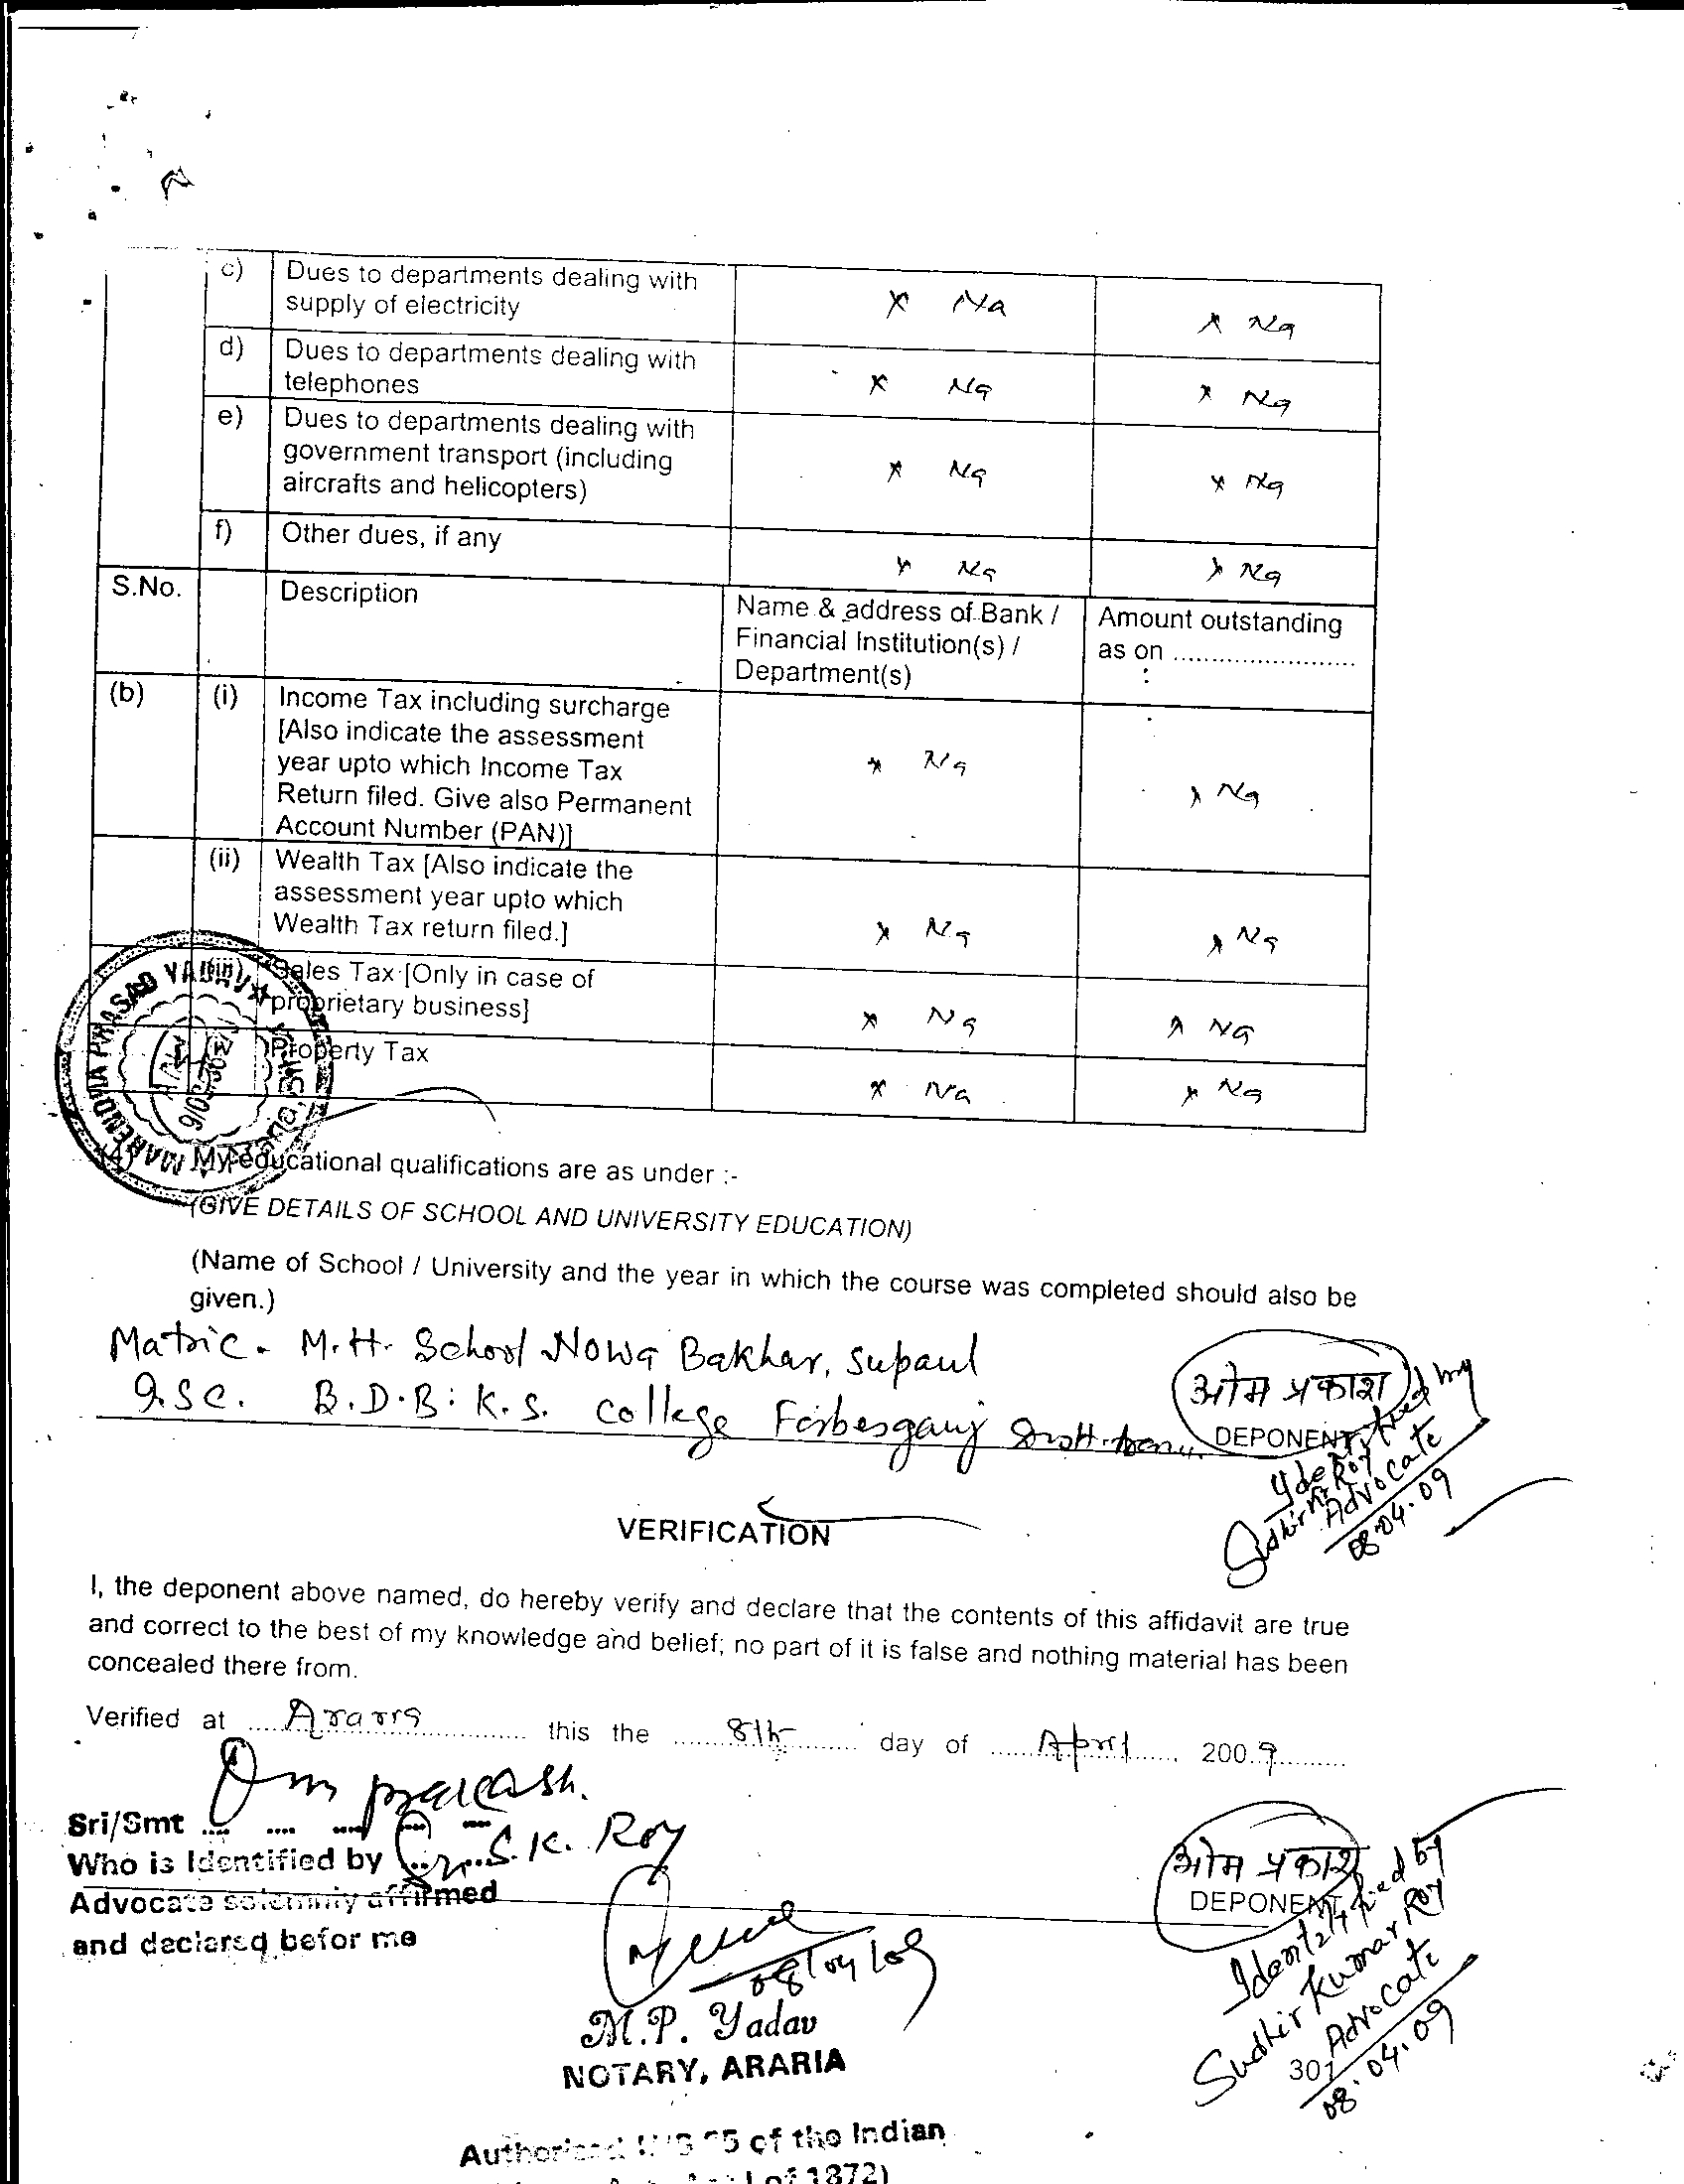 c) Dues to departments dealing with
supply of electricity
× Na
× Na
d) Dues to departments dealing with
telephones
× Na
× Na
e) Dues to departments dealing with
government transport (including
aircrafts and helicopters)
× Na
× Na
f) Other dues, if any
× Na
× Na
S.No.
Description
Name & address of Bank /
Financial Institution(s) /
Department(s)
Amount outstanding
as on ........................
(b) (i) Income Tax including surcharge
[Also indicate the assessment
year upto which Income Tax
Return filed. Give also Permanent
Account Number (PAN)]
× Na
× Na
(ii) Wealth Tax [Also indicate the
assessment year upto which
Wealth Tax return filed.]
× Na
× Na
(iii) Sales Tax [Only in case of
proprietary business]
× Na
× Na
Property Tax
× Na
× Na
(4) My educational qualifications are as under :-
(GIVE DETAILS OF SCHOOL AND UNIVERSITY EDUCATION)
(Name of School / University and the year in which the course was completed should also be
given.)
Matric. M.H. School Nowa Bakhar, Supaul
I.SC. B.D.B.K.S. College Forbesganj
ओम प्रकाश
DEPONENT
Identified by
Sudhir Kr Roy
Advocate
08.04.09
VERIFICATION
I, the deponent above named, do hereby verify and declare that the contents of this affidavit are true
and correct to the best of my knowledge and belief; no part of it is false and nothing material has been
concealed there from.
Verified at Araria this the 8th day of April 2009
Om prakash.
Sri/Smt
Who is Identified by S.K. Roy
Advocate solemnly affirmed
and declared befor me
08/04/09
M.P. Yadav
NOTARY, ARARIA
ओम प्रकाश
DEPONENT
Identified by
Sudhir Kumar Roy
Advocate
08.04.09
301
of the Indian
of 1872)